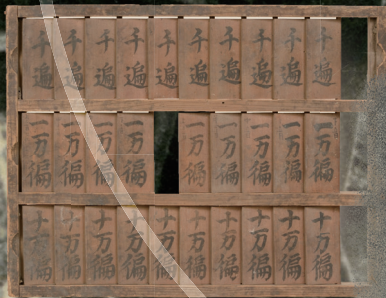 千遍
千遍
千遍
千遍
千遍
千遍
千遍
千遍
千遍
千遍
一万徧
一万徧
一万徧
一万徧
一万徧
一万徧
一万徧
一万徧
一万徧
十万徧
十万徧
十万徧
十万徧
十万徧
十万徧
十万徧
十万徧
十万徧
十万徧